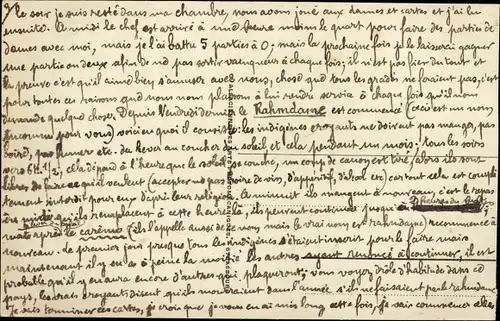 le soir je suis resté dans ma chambre, nous avons joué aux dames et cartes et j'ai lu
ensuite. A midi le chef est arrivé à une heure moins le quart pour faire des parties de
dames avec moi, mais je l'ai battu 5 parties à 0; mais la prochaine fois je le laisserai gagner
une partie ou deux afin de ne pas sortir vainqueur à chaque fois; il n'est pas fier du tout et
la preuve c'est qu'il aime bien s'amuser avec nous, chose que tous les gradés ne feraient pas, c'est
pour toutes ces raisons que nous nous plaisons à lui rendre service à chaque fois qu'il nous
demande quelque chose. Depuis Vendredi dernier le Rahmdame est commencé (ceci est un nom
inconnu pour vous) voici en quoi il consiste: les indigènes croyants ne doivent pas manger, pas
boire, pas fumer etc. du lever au coucher du soleil et cela pendant un mois; tous les soirs
vers 6H 1/2, cela dépend à l'heure que le soleil se couche, un coup de canon est tiré (alors ils sont
libres de faire ce qu'ils veulent (excepter ne pas boire de vin, d'apéritif, etc) car tout cela est complè-
tement interdit pour eux d'après leur religion. A minuit ils mangent à nouveau, c'est le repas
de midi qu'ils remplacent à cette heure là, ils peuvent continuer jusqu'à
mats après le carême (ils l'appelle aussi de ce nom mais le vrai nom est rahmdame) recommence à
nouveau. Le premier jour presque tous les indigènes s'étaient inscrit pour le faire mais
maintenant il y en a à peine la moitié, les autres ayant renoncé à continuer, il est
probable qu'il y en aura encore d'autres qui plaqueront; vous voyez drôle d'habitude dans ce
pays, les vrais croyants disent qu'ils mourraient dans l'année s'ils ne faisaient pas le rahmdame
je vais terminer ces cartes, je crois que je vous en ai mis long cette fois, je vais commencer